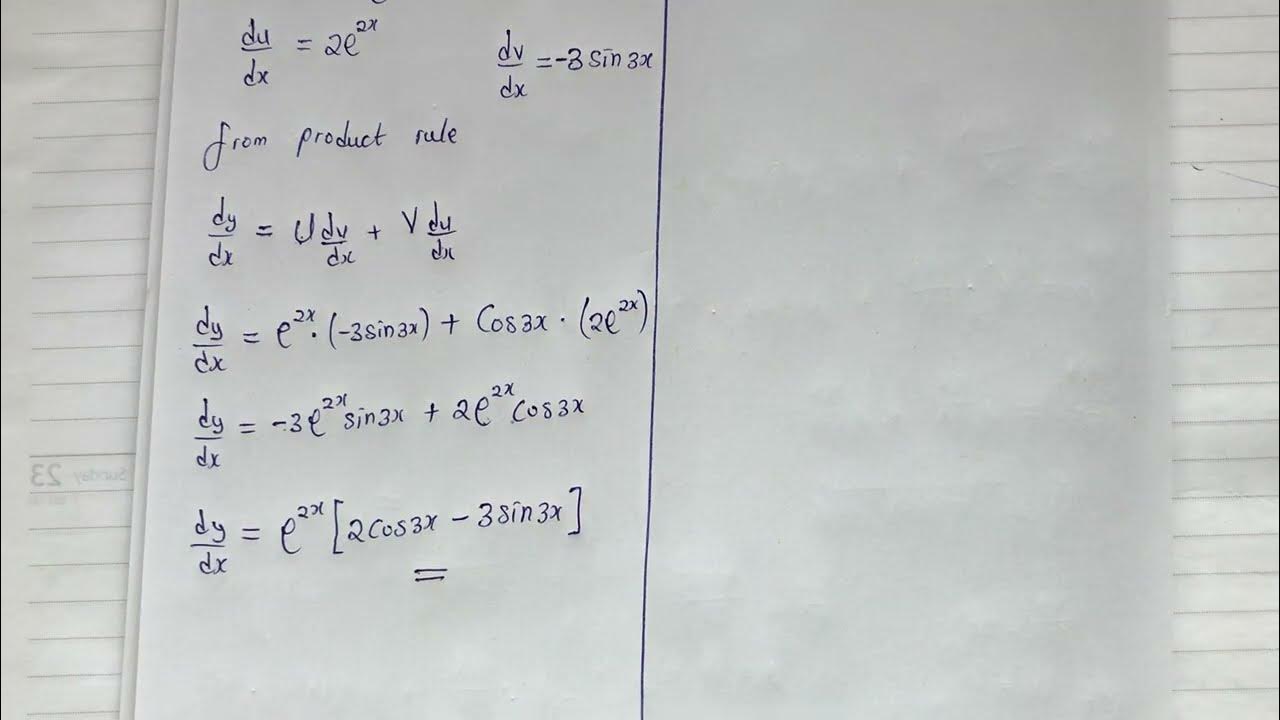 du/dx = 2e^2x dv/dx = -3 sin 3x
from product rule
dy/dx = U dv/dx + V du/dx
dy/dx = e^2x · (-3sin3x) + Cos3x · (2e^2x)
dy/dx = -3e^2x sin3x + 2e^2x cos3x
dy/dx = e^2x [2cos3x - 3sin3x]
Sunday 23